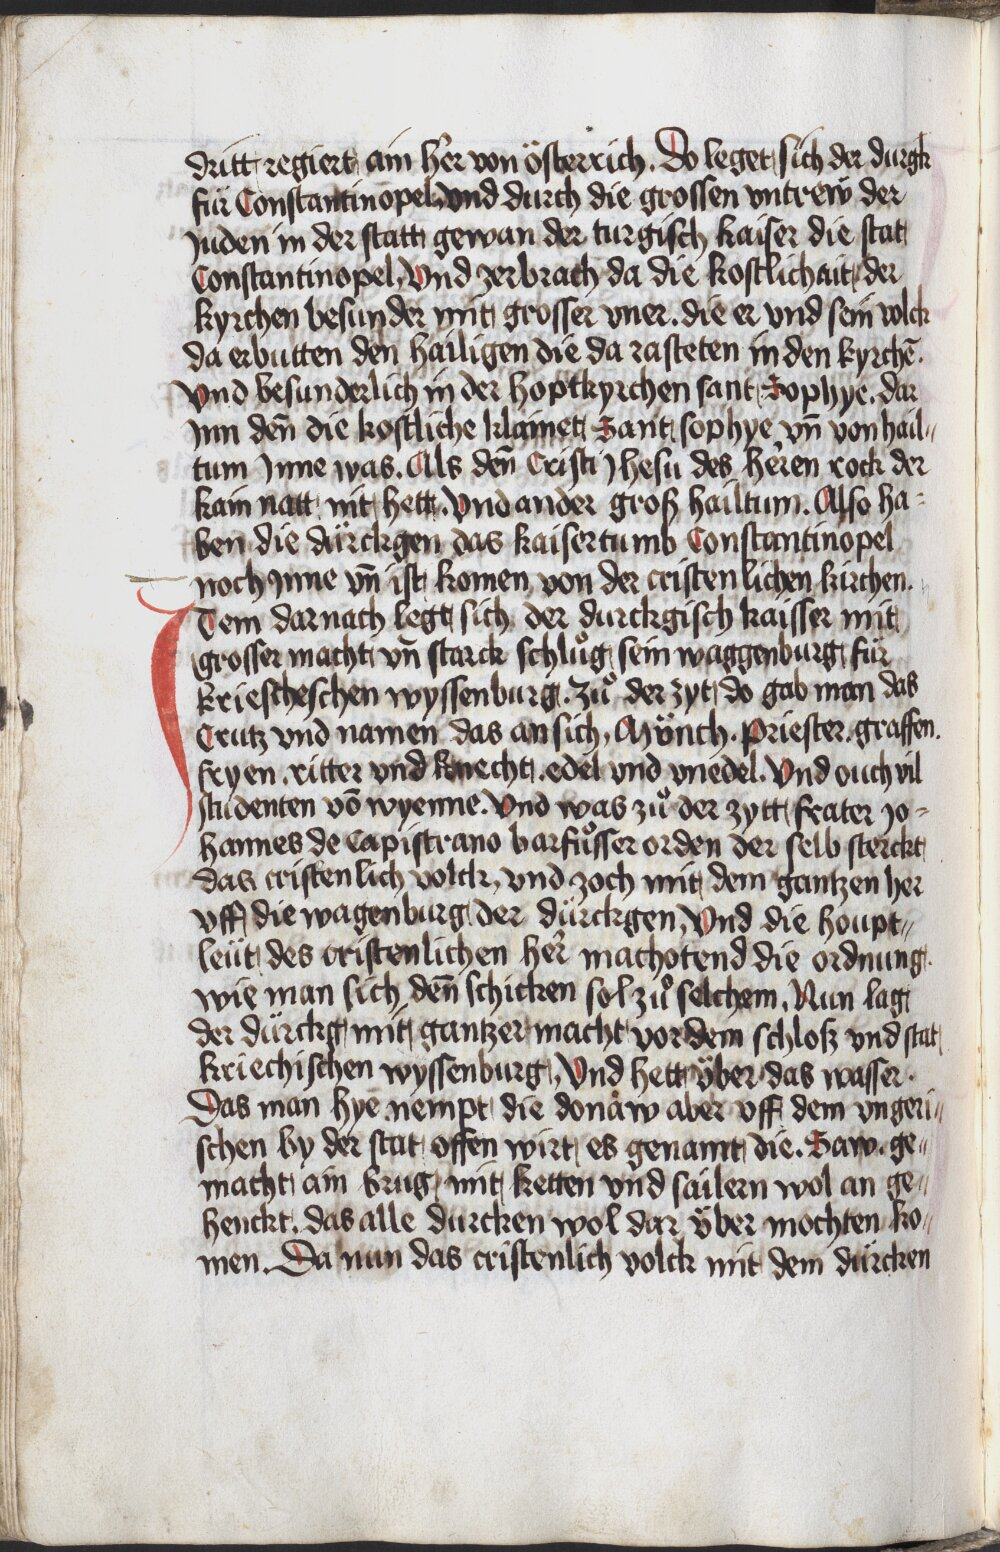 dritt regiert ain her̄ von österrich. Do leget sich der durgk
für Constantinopel, vnd durch die grossen vntrew der
Juden in der statt gewan der turgisch kaiser die stat
Constantinopel, Vnd zerbrach da die kostlichait der
kyrchen besunder mit grosser vner. die er vnd sein volck
da erbutten den hailigen die da rasteten in den kyrchē.
Vnd besunderlich in der hoptkyrchen sant Sophye. dar
Jnn deñ die kostliche klainet Sant sophye vñ von hail„
tum Jnne was. Als deñ Cristi Jhesu des heren rock der
kain natt nit hett. Vnd ander groß hailtum. Also ha⸗
ben die dürckgen das kaisertumb Constantinopel
noch Jnne vñ ist komen von der cristenlichen kirchen.
ITem darnach legt sich der durckgisch kaisser mit
grosser macht vñ starck schlůg sein waggenburg für
kriescheschen wyssenburg. Zů der zyt do gab man das
Crutz vnd namen das an sich, Mönch. priester. graffen.
fryen. ritter vnd knecht. edel vnd vnedel. Vnd ouch vil
studenten vō wyenne. Vnd was zů der zytt frater Jo⸗
hannes de Capistrano barfůsser orden der selb sterckt
das cristenlich volck, vnd zoch mit dem gantzen her
vff die wagenburg der dürckgen, Vnd die houpt„
leüt des cristenlichen her̄ machotend die ordnung.
wie man sich deñ schicken sol zů selchem. Nun lag
der dürckg mit gantzer macht vor dem schloß vnd stat
kriechischen wyssenburg, Vnd hett über das wasser.
Das man hye nempt die donaw aber vff dem vngeri„
schen by der stat offen wirt es genamt die. Saw. ge„
macht ain brug mit ketten vnd sailern wol an ge„
henckt. das alle durcken wol dar über mochten ko„
men. Da nun das cristenlich volck mit dem dürcken